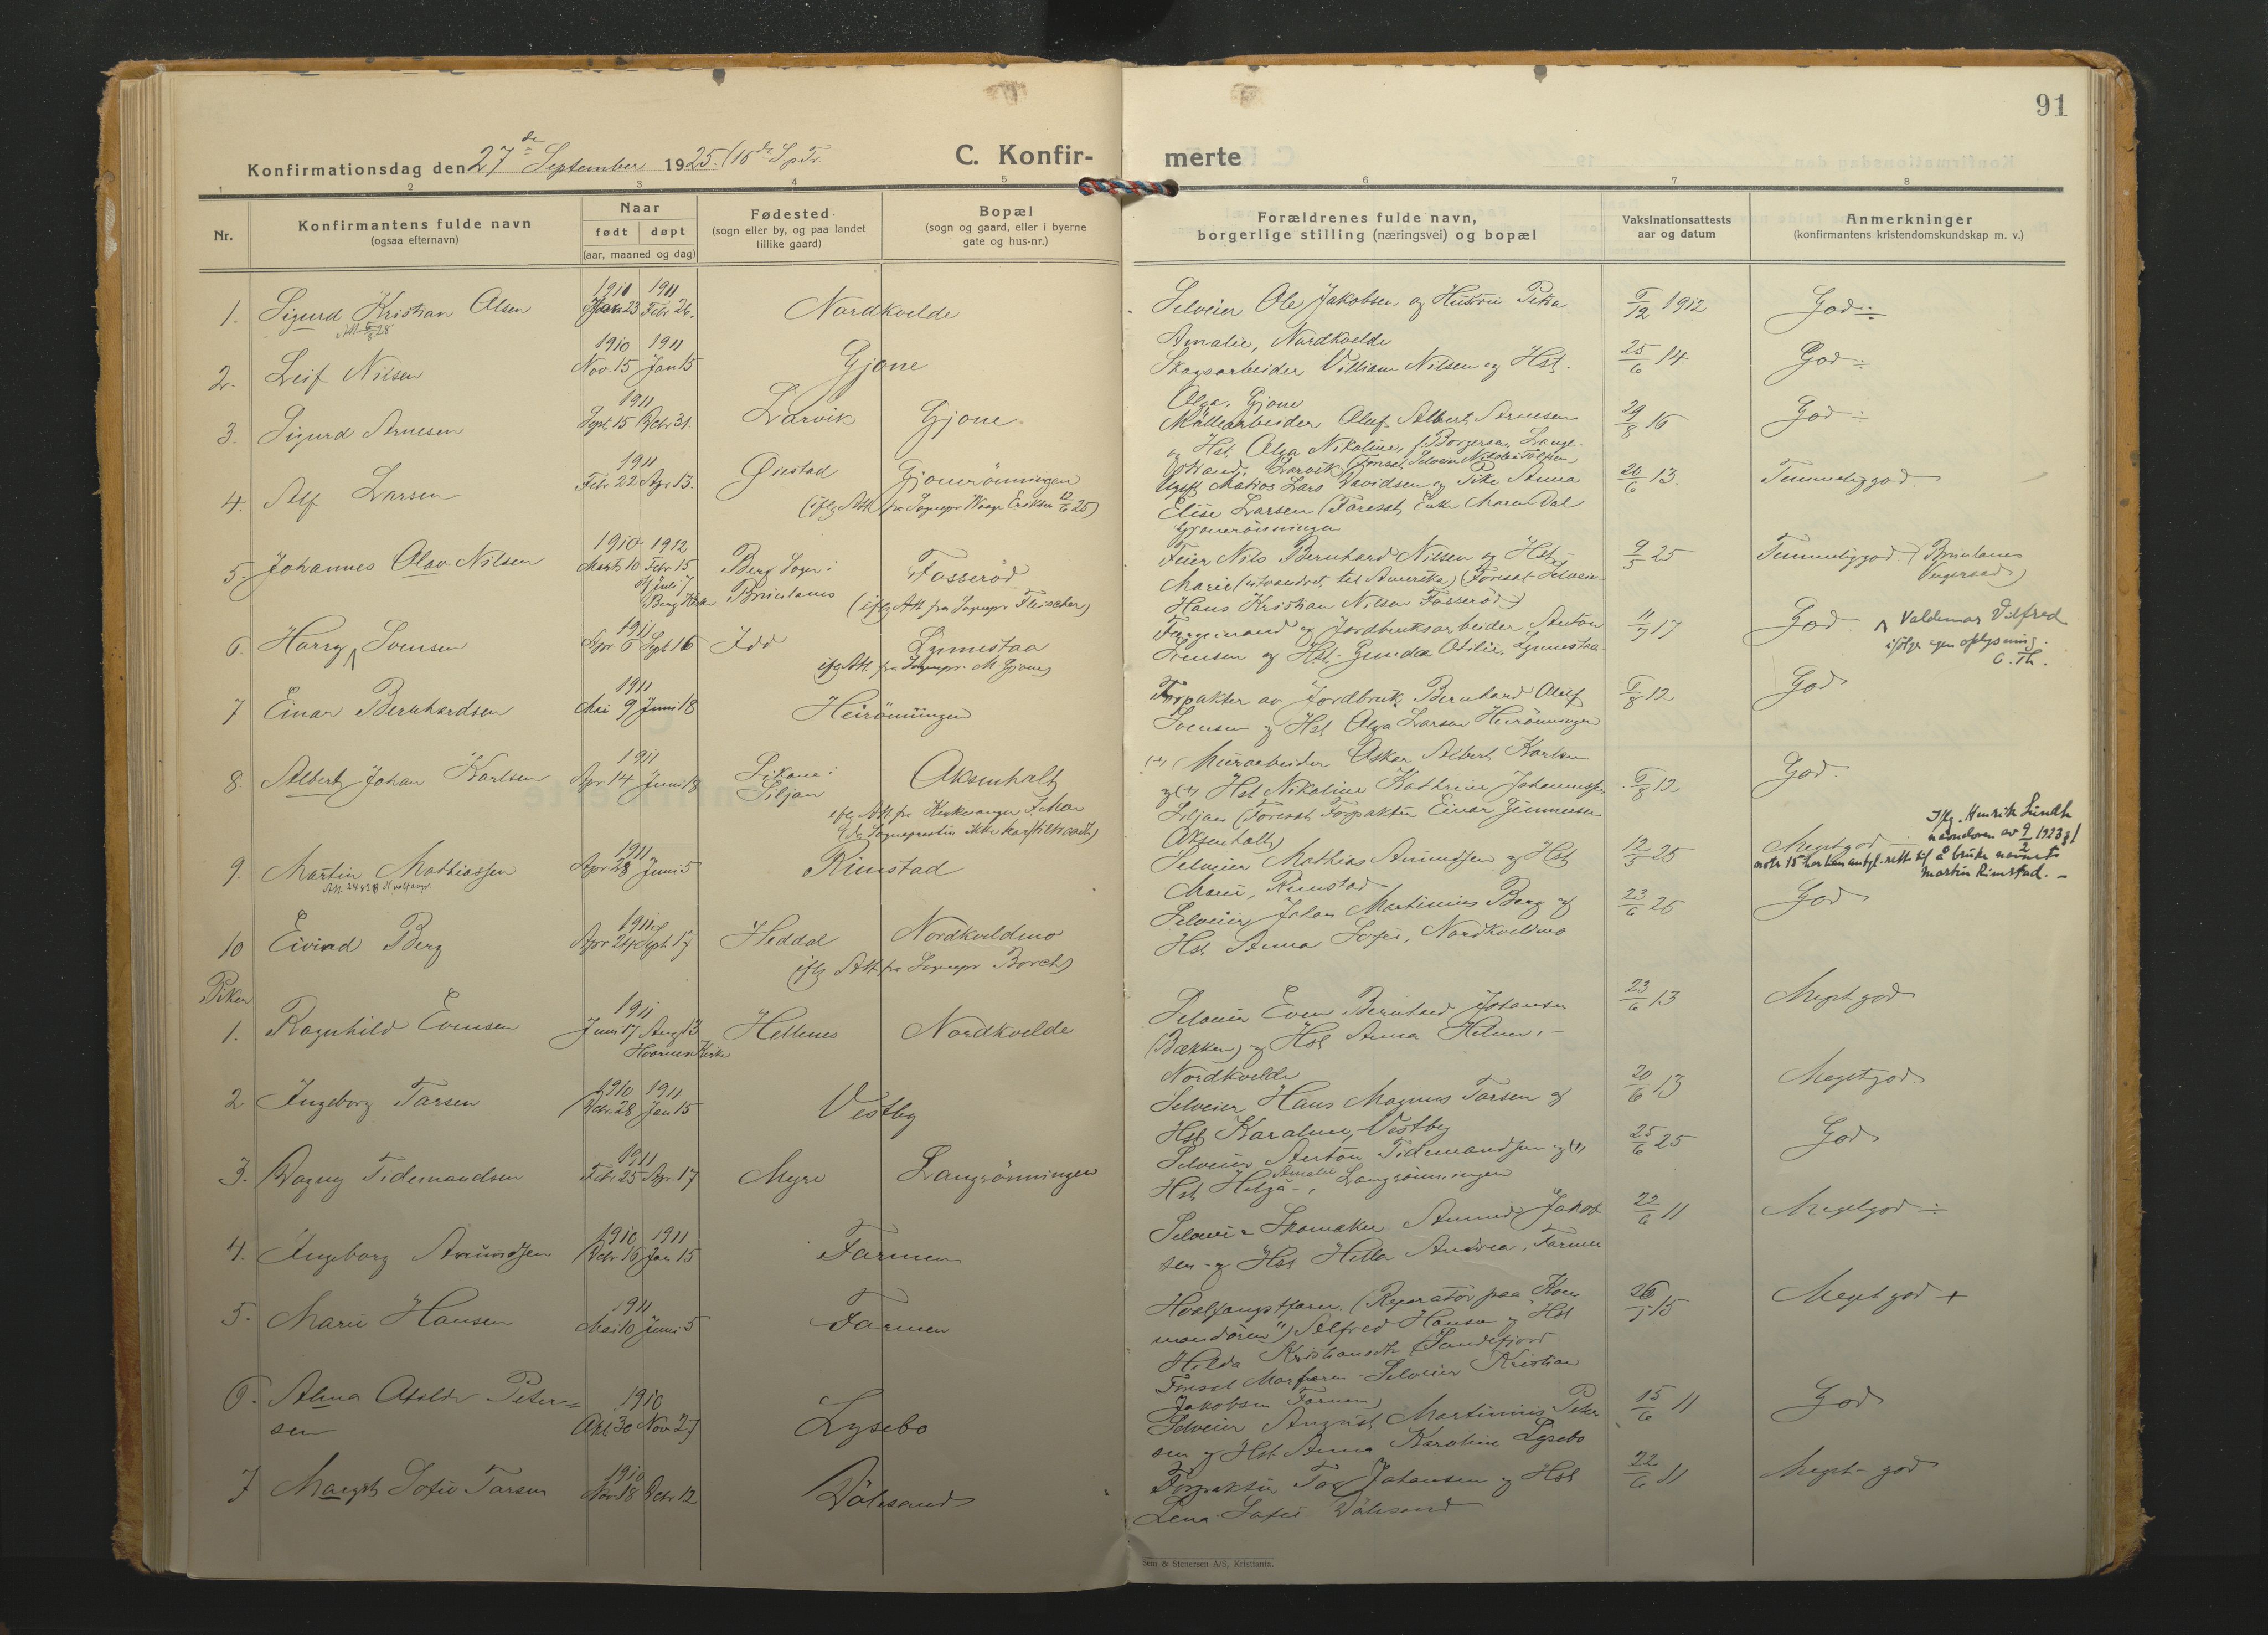 91
Konfirmationsdag den 27de September 1925. (16de S.p.Tr.
C. Konfir- merte
1 2 3 4 5 6 7 8
Nr.
Konfirmantens fulde navn
(ogsaa efternavn)
Naar
født døpt
(aar, maaned og dag)
Fødested
(sogn eller by, og paa landet
tillike gaard)
Bopæl
(sogn og gaard, eller i byerne
gate og hus-nr.)
Forældrenes fulde navn,
borgerlige stilling (næringsvei) og bopæl
Vaksinationsattests
aar og datum
Anmerkninger
(konfirmantens kristendomskundskap m. v.)
1. Sigurd Kristian Olsen 1911 Jan 23 1911 Febr 26. Nordkvelde
Selveier Ole Jakobsen og Hustru Petra
Amalie, Nordkvelde
6/12 1912 God
2. Leif Nilsen 1910 Nov. 15 1911 Jan 15 Gjone
Skogsarbeider Villiam Nilsen og Hst.
Olga, Gjone
25/6 14. God
3. Sigurd Arnesen 1911 Sept 15 Dcbr 31. Larvik Gjone
Møllearbeider Oluf Albert Arnesen
og Hst. Olga Nikoline f. Borgersen, Lange-
strand, Larvik
29/8 16 God
4. Alf Larsen 1911 Febr 22 Apr 13. Øiestad Gjonerønningen
(iflg Att. fra Sognepr. Waage Eriksen 12/6 25)
Ugift Matros Lars Davidsen og Pike Anna
Elise Larsen (Foresat, Enke Maren Dal
Gjonerønningen
20/6 13. Temmelig god
5. Johannes Olav Nilsen 1910 Marts 10 1912 Febr 15 Berg Sogn i
Brunlanes Fosserød
(iflg Att fra Sognepr Fleischer)
Feier Nils Bernhard Nilsen og Hst.
Marie (utvandret til Amerika) (Foresat Selveier
Hans Kristian Nilsen Fosserød)
9/5 25 Temmelig god. (Brunlanes
6. Harry ⋀ Svensen 1911 Apr 6 Sept 16 Idd Lynnestaa
iflg Att. fra Sognepr. M Gjone
og Jordbruksarbeider Anton
Svensen og Hst. Gunda Otilie, Lynnestaa
11/7 17 God. ⋀ Valdemar Vilfred
ifølge egen oplysning.
C. Th.
7 Einar Bernhardsen 1911 Mai 9 Juni 18 Heirønningen
Forpakter av Jordbruk Bernhard Oluf
Svensen og Hst Olga Larsen Heirønningen
6/8 12 God
8. Albert Johan Karlsen 1911 Apr 14 Juni 18
Siljan Aksenholt
iflg Att. fra Kirkesanger
(+) Murarbeider Oskar Albert Karlsen
og (+) Hst Nikoline Kathrine Johannessen
Siljan (Foresat Forpakter Einar Gunnersen
Aksenholt)
6/8 12 God.
9. Martin Mathiassen 1911 Apr 28 Juni 5 Rimstad
Selveier Mathias Amundsen og Hst
Marie, Rimstad
12/5 25 Meget god
Iflg. Henrik Lundh
navneloven av 9/2 1923 §1
note 15 har han antgl. rett til å bruke navnet
Martin Rimstad. —
10 Eivind Berg 1911 Apr 24 Sept. 17 Heddal Nordkveldmo
(iflg Att. fra Sognepr Borch)
Selveier Johan Martinius Berg og
Hst Anna Sofie, Nordkveldmo
23/6 25 God
Piker
1. Ragnhild Evensen 1911 Juni 17 Aug 13
Hvarnes Kirke Hellenes Nordkvelde
Selveier Even Bernhard Johansen
(Bækken) og Hst Anna Helene,
Nordkvelde
23/6 13 Meget god
2 Ingeborg Tarsen 1910 Dcbr. 28 1911 Jan 15 Vestby
Selveier Hans Magnus Tarsen og
Hst Karoline, Vestby
20/6 13 Meget god
3. Dagny Tidemandsen 1911 Febr 25 Apr. 17 Myre Langrønningen
Selveier Anton Tidemandsen og (+)
Hst Helga Amalie, Langrønningen
25/6 25 God
4. Ingeborg Amundsen 1910 Dcbr. 16 1911 Jan 15 Farmen
Selveier Skomaker Amund Jakob
sen og Hst Hella Andrea, Farmen
22/6 11 Meget god
5. Marie Hansen 1911 Mai 10 Juni 5 Farmen
Hvalfangstform. (Reparatør paa "Kom
mandøren") Alfred Hansen og Hst
Hilda Kristiansdtr (Sandefjord
Foresat Morfaren Selveier Kristian
Jakobsen Farmen)
15 Meget god +
6. Alma Otilde Peter=
sen 1910 Okt. 30 Nov 27 Lysebo
Selveier August Martinius Peter
sen og Hst Anna Karoline Lysebo
15/6 11 God
7 Margit Sofie Tarsen 1910 Nov 18 Dcbr 12 Dølesand
Forpakter Tor Johansen og Hst
Lena Sofie Dølesand
22/6 11 Meget god
Sem & Stenersen A/S, Kristiania.